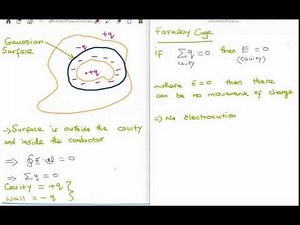 Gaussian
Surface
+q
-q
++q
→ Surface is outside the cavity
and inside the conductor
⇒ ∮E.dl = 0
⇒ Σq = 0
Cavity = +q }
Wall = -q }
Faraday Cage
if Σq = 0 then E = 0
cavity (cavity)
→ where E = 0 then there
can be no movement of charge
⇒ No electrocution